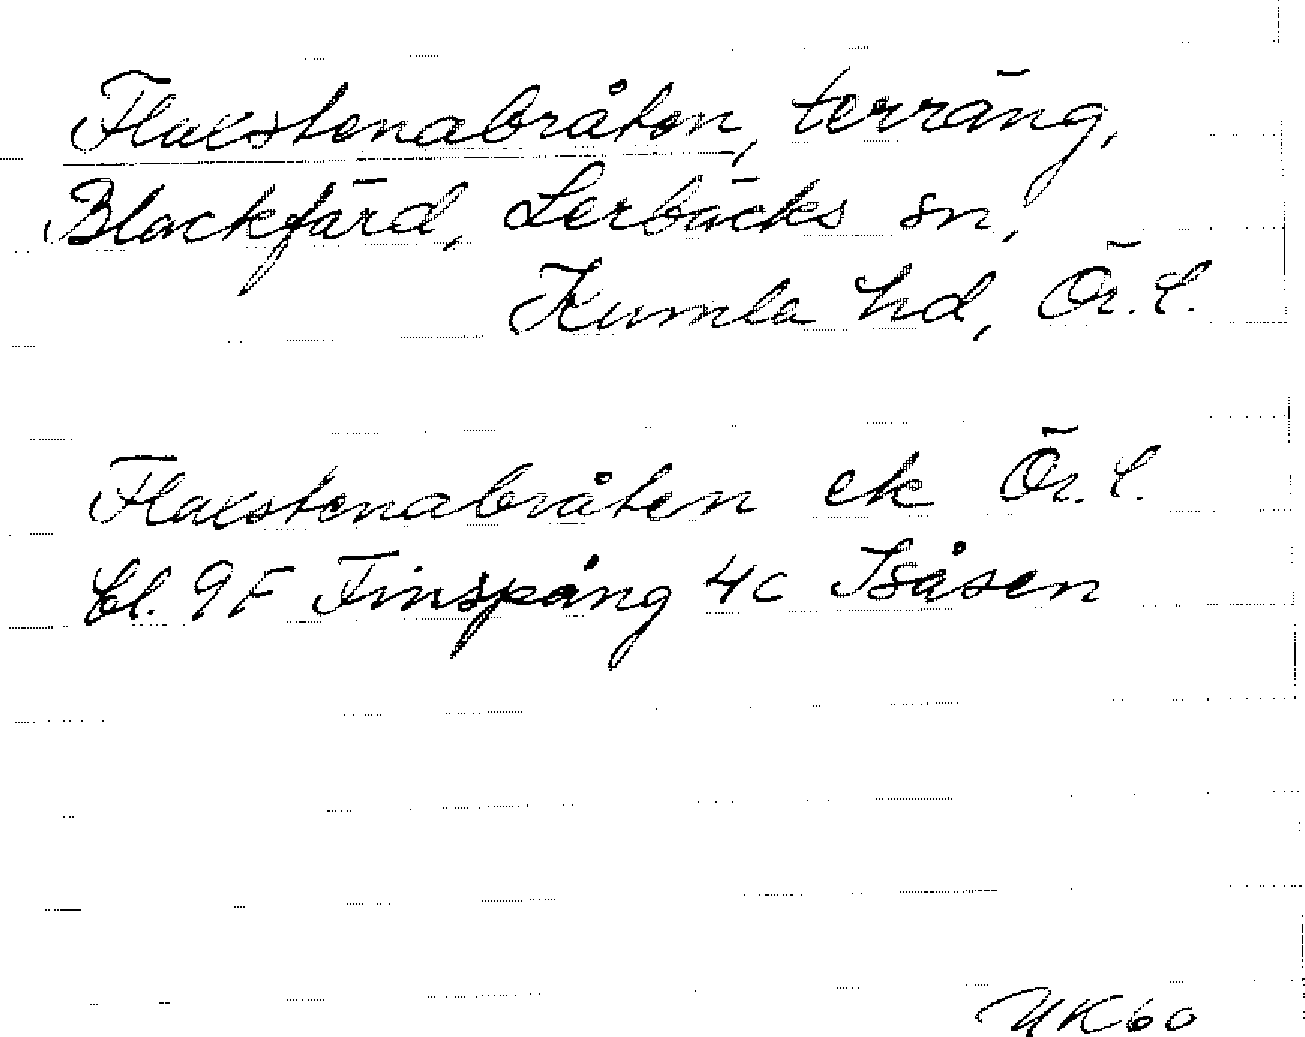 Flaestenabråten, terräng,
Blackfärd, Lerbäcks sn,
Kumla hd, Ör. l.
Flaestenabråten ek Ör. l.
bl. 9F Finspång 4c Isåsen
UK60